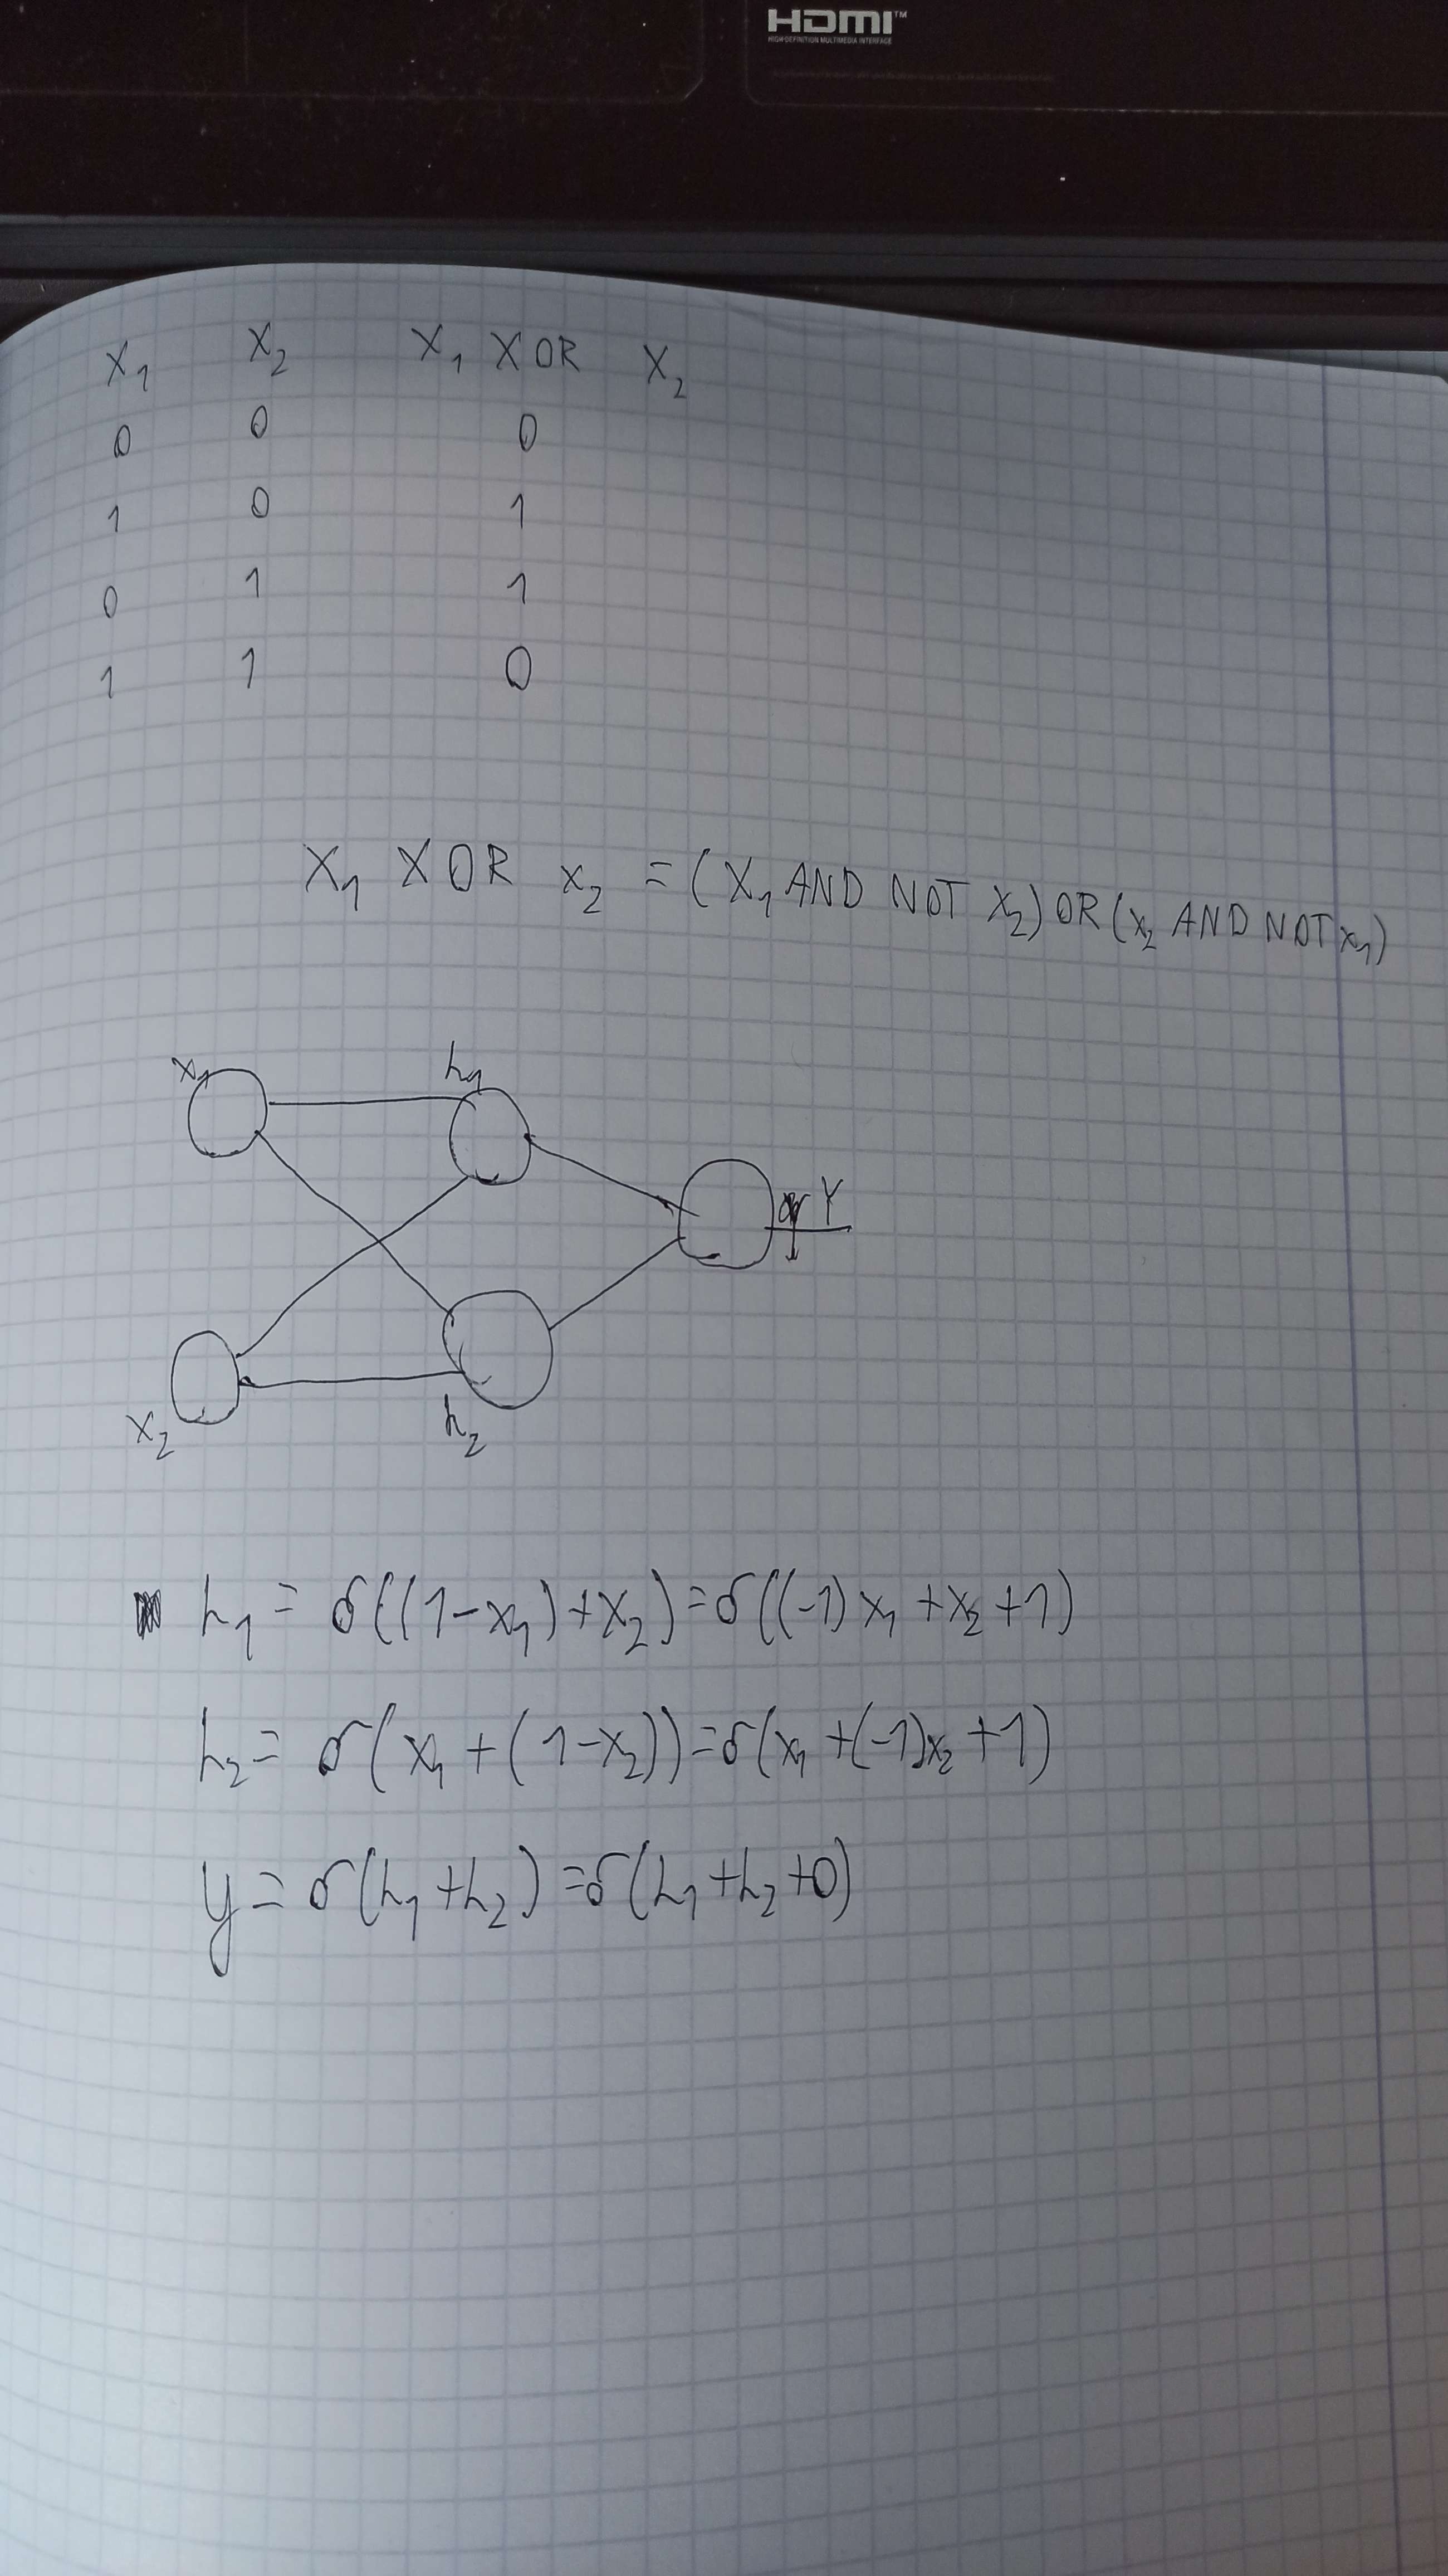 HDMI™
HIGH-DEFINITION MULTIMEDIA INTERFACE
x₁ x₂ x₁ XOR x₂
0 0 0
1 0 1
0 1 1
1 1 0
x₁ XOR x₂ = (x₁ AND NOT x₂) OR (x₂ AND NOT x₁)
x₁ h₁
Y
x₂ h₂
h₁ = σ((1-x₁)+x₂) = σ((-1)x₁+x₂+1)
h₂ = σ(x₁+(1-x₂)) = σ(x₁+(-1)x₂+1)
y = σ(h₁+h₂) = σ(h₁+h₂+0)